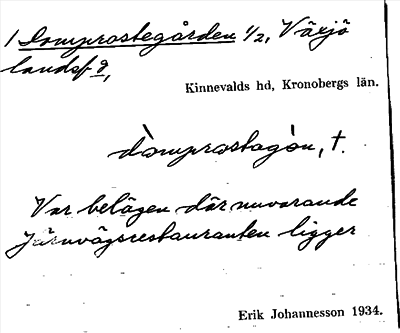 1 Domprostegården 1/2, Växjö
landsf d,
Kinnevalds hd, Kronobergs län.
dòmprostagòn, t.
Var belägen där nuvarande
Järnvägsrestauranten ligger
Erik Johannesson 1934.